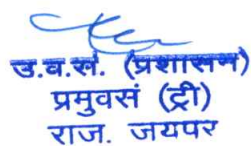 उ.व.सं. (प्रशासन)
प्रमुवसं (ट्री)
राज. जयपर